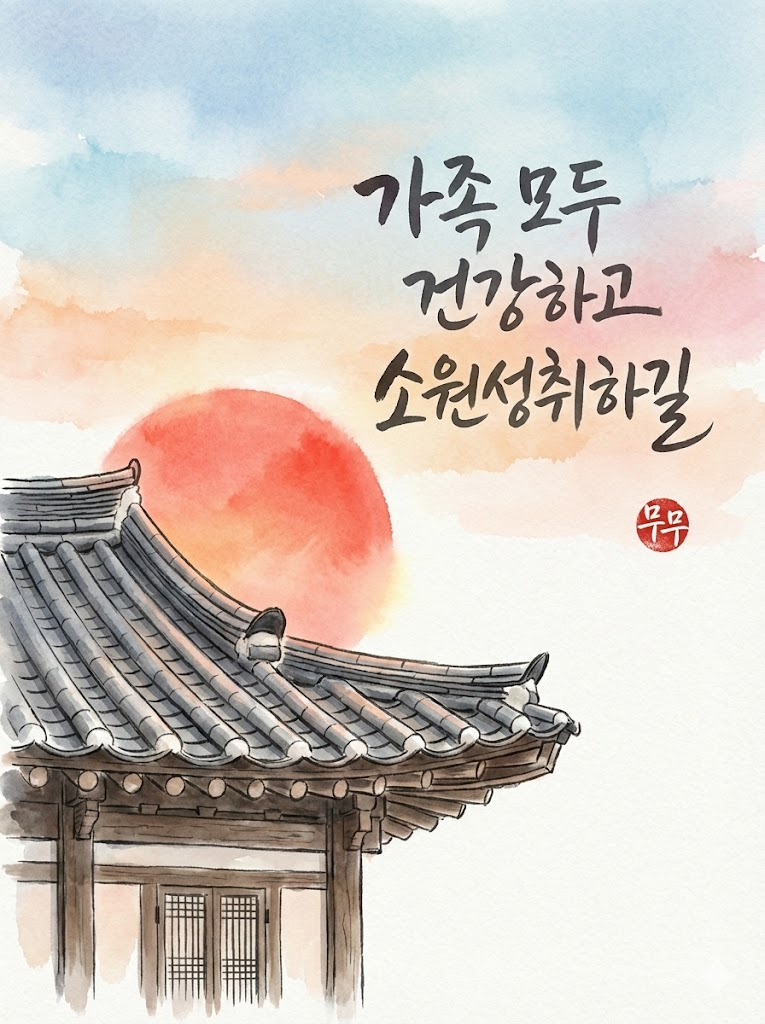 가족 모두
건강하고
소원성취하길
무무